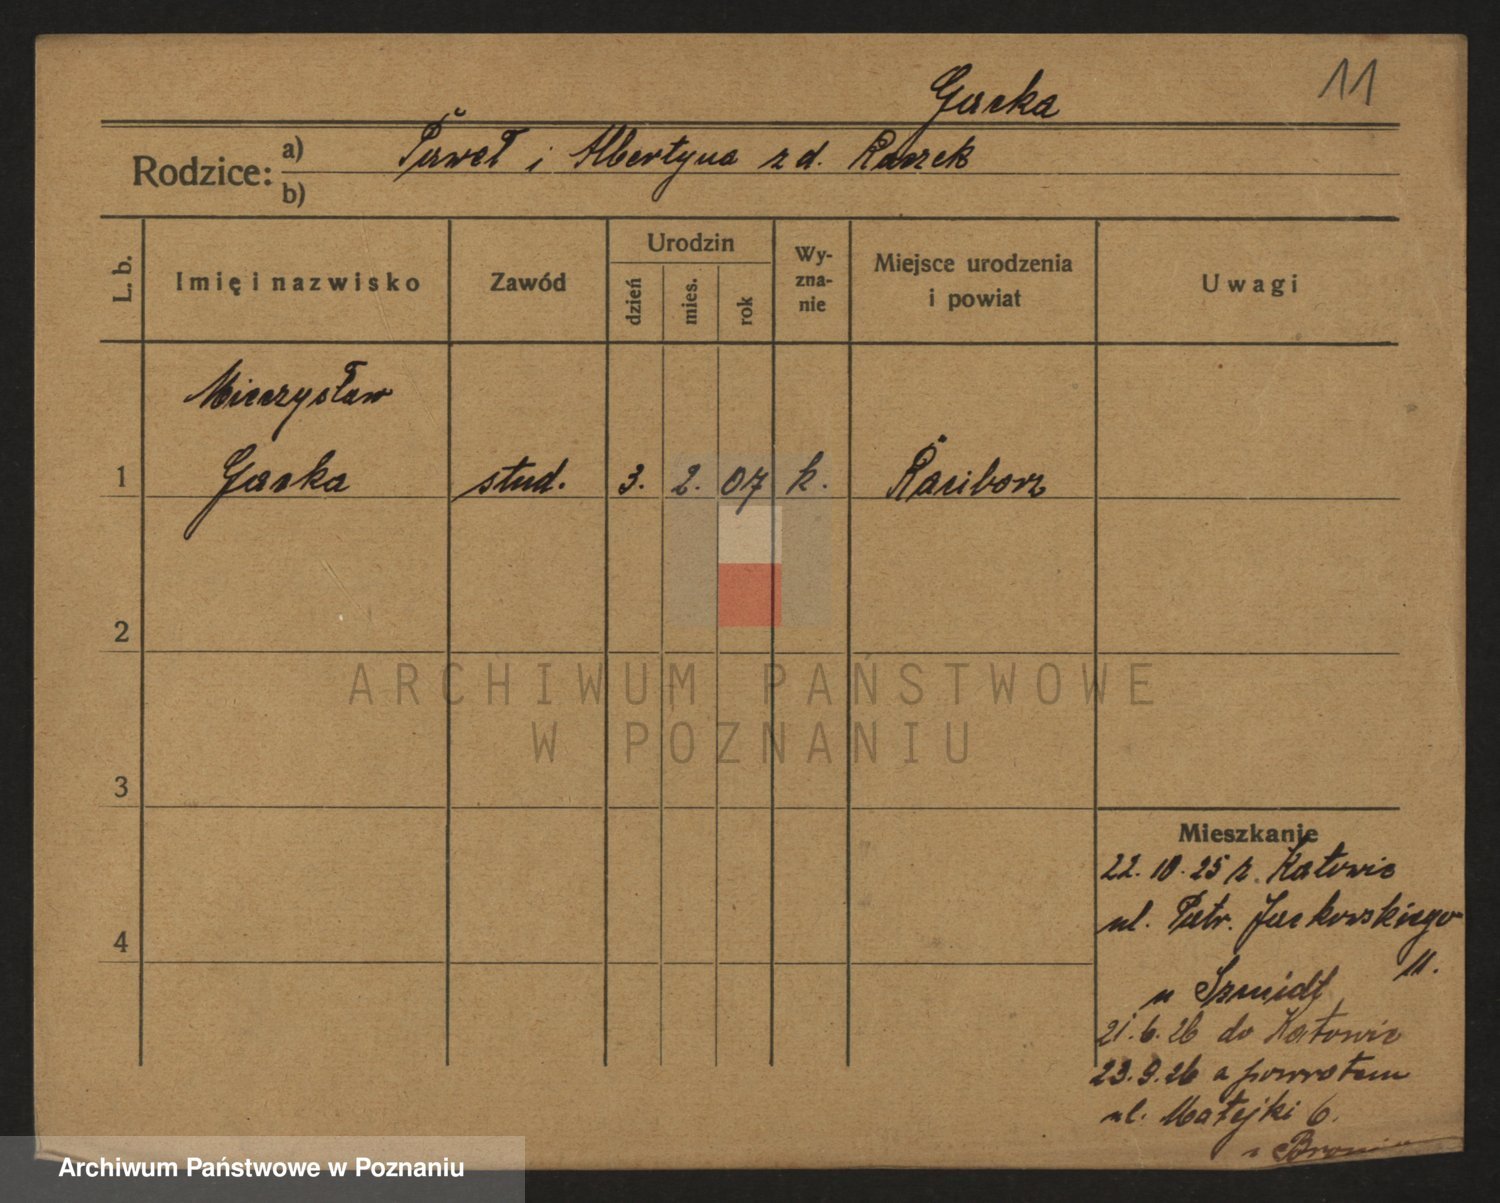 Gacka
11
Rodzice:
a) Paweł i Albertyna z d. Raszek
b)
L. b.
Imię i nazwisko
Zawód
Urodzin
dzień
mies.
rok
Wy-
zna-
nie
Miejsce urodzenia
i powiat
Uwagi
Mieczysław
1 Gacka stud. 3. 2. 07 k. Racibórz
2
ARCHIWUM PAŃSTWOWE
W POZNANIU
3
Mieszkanie
22.10.25 z Katowic
ul. Patr. Jackowskiego
11.
4
u Szmidt
21.6.26 do Katowic
23.9.26 z powrotem
ul. Matejki 6.
Archiwum Państwowe w Poznaniu